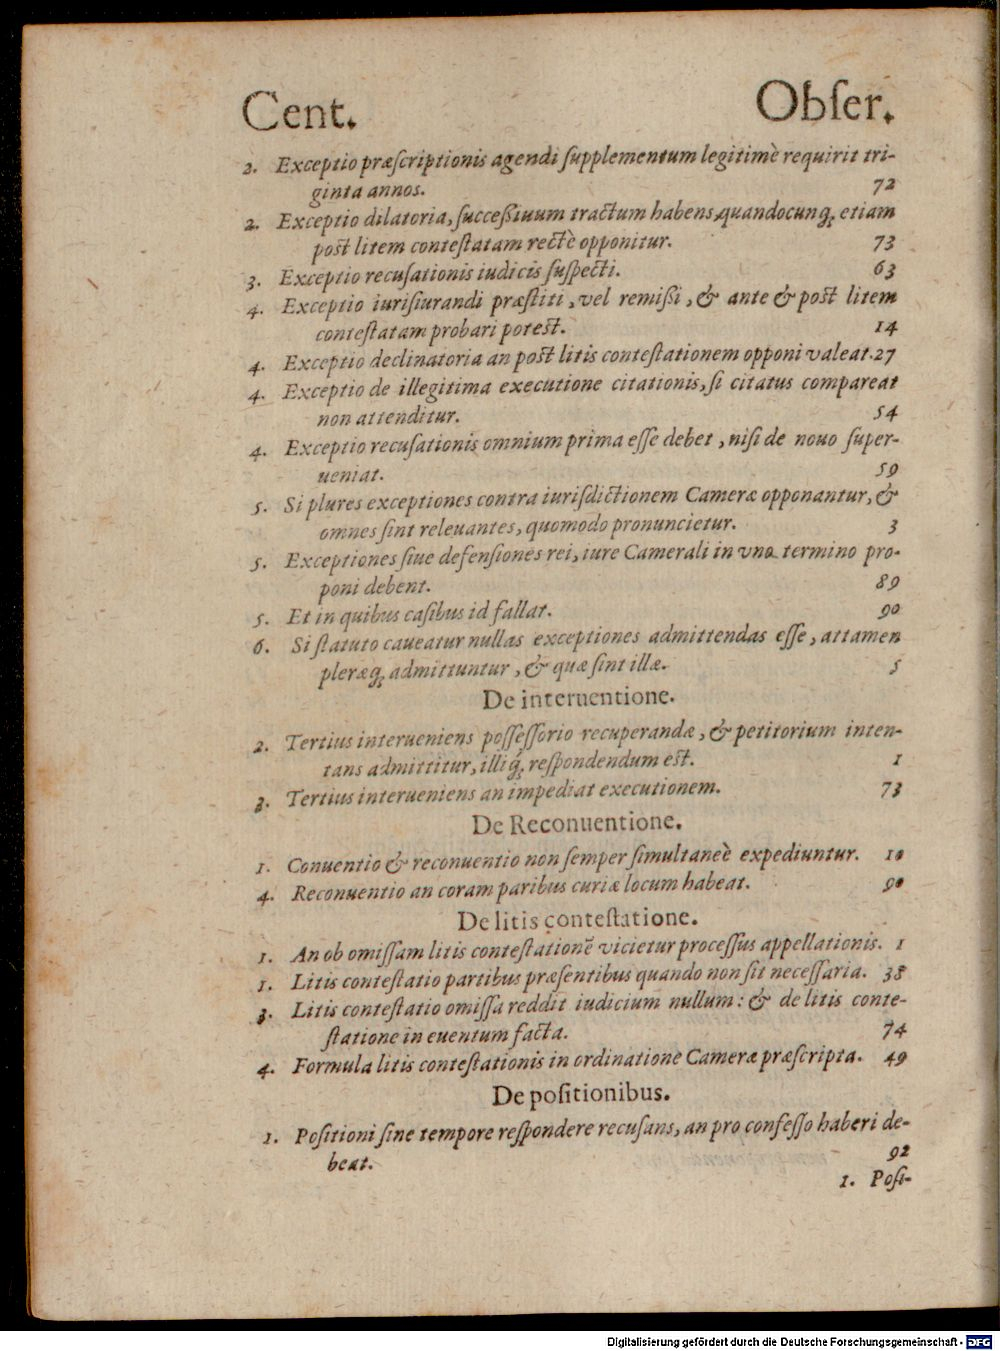 Cent. Obſer.
2. Exceptio præſcriptionis agendi ſupplementum legitimè requirit tri-
ginta annos. 72
2. Exceptio dilatoria, ſucceßiuum tractum habens, quandocunq; etiam
post litem conteſtatam rectè opponitur. 73
3. Exceptio recuſationis iudicis ſuſpecti. 63
4. Exceptio iuriſiurandi præſtiti, vel remißi, & ante & post litem
conteſtatam probari potest. 14
4. Exceptio declinatoria an post litis conteſtationem opponi valeat. 27
4. Exceptio de illegitima executione citationis, ſi citatus compareat
non attenditur. 54
4. Exceptio recuſationis omnium prima eſſe debet, niſi de nouo ſuper-
ueniat. 59
5. Si plures exceptiones contra iuriſdictionem Cameræ opponantur, &
omnes ſint releuantes, quomodo pronuncietur. 3
5. Exceptiones ſiue defenſiones rei, iure Camerali in vno termino pro-
poni debent. 89
5. Et in quibus caſibus id fallat. 90
6. Si ſtatuto caueatur nullas exceptiones admittendas eſſe, attamen
pleræq; admittuntur, & quæ ſint illæ. 5
De interuentione.
2. Tertius interueniens poſſeſſorio recuperandæ, & petitorium inten-
tans admittitur, illiq; reſpondendum est. 1
3. Tertius interueniens an impediat executionem. 73
De Reconuentione.
1. Conuentio & reconuentio non ſemper ſimultaneè expediuntur. 10
4. Reconuentio an coram paribus curiæ locum habeat. 90
De litis conteſtatione.
1. An ob omiſſam litis conteſtationē vicietur proceſſus appellationis. 1
1. Litis conteſtatio partibus præſentibus quando non ſit neceſſaria. 38
3. Litis conteſtatio omiſſa reddit iudicium nullum: & de litis conte-
ſtatione in euentum facta. 74
4. Formula litis conteſtationis in ordinatione Cameræ præſcripta. 49
De poſitionibus.
1. Poſitioni ſine tempore reſpondere recuſans, an pro confeſſo haberi de-
beat. 92
1. Poſi-
Digitalisierung gefördert durch die Deutsche Forschungsgemeinschaft - DFG